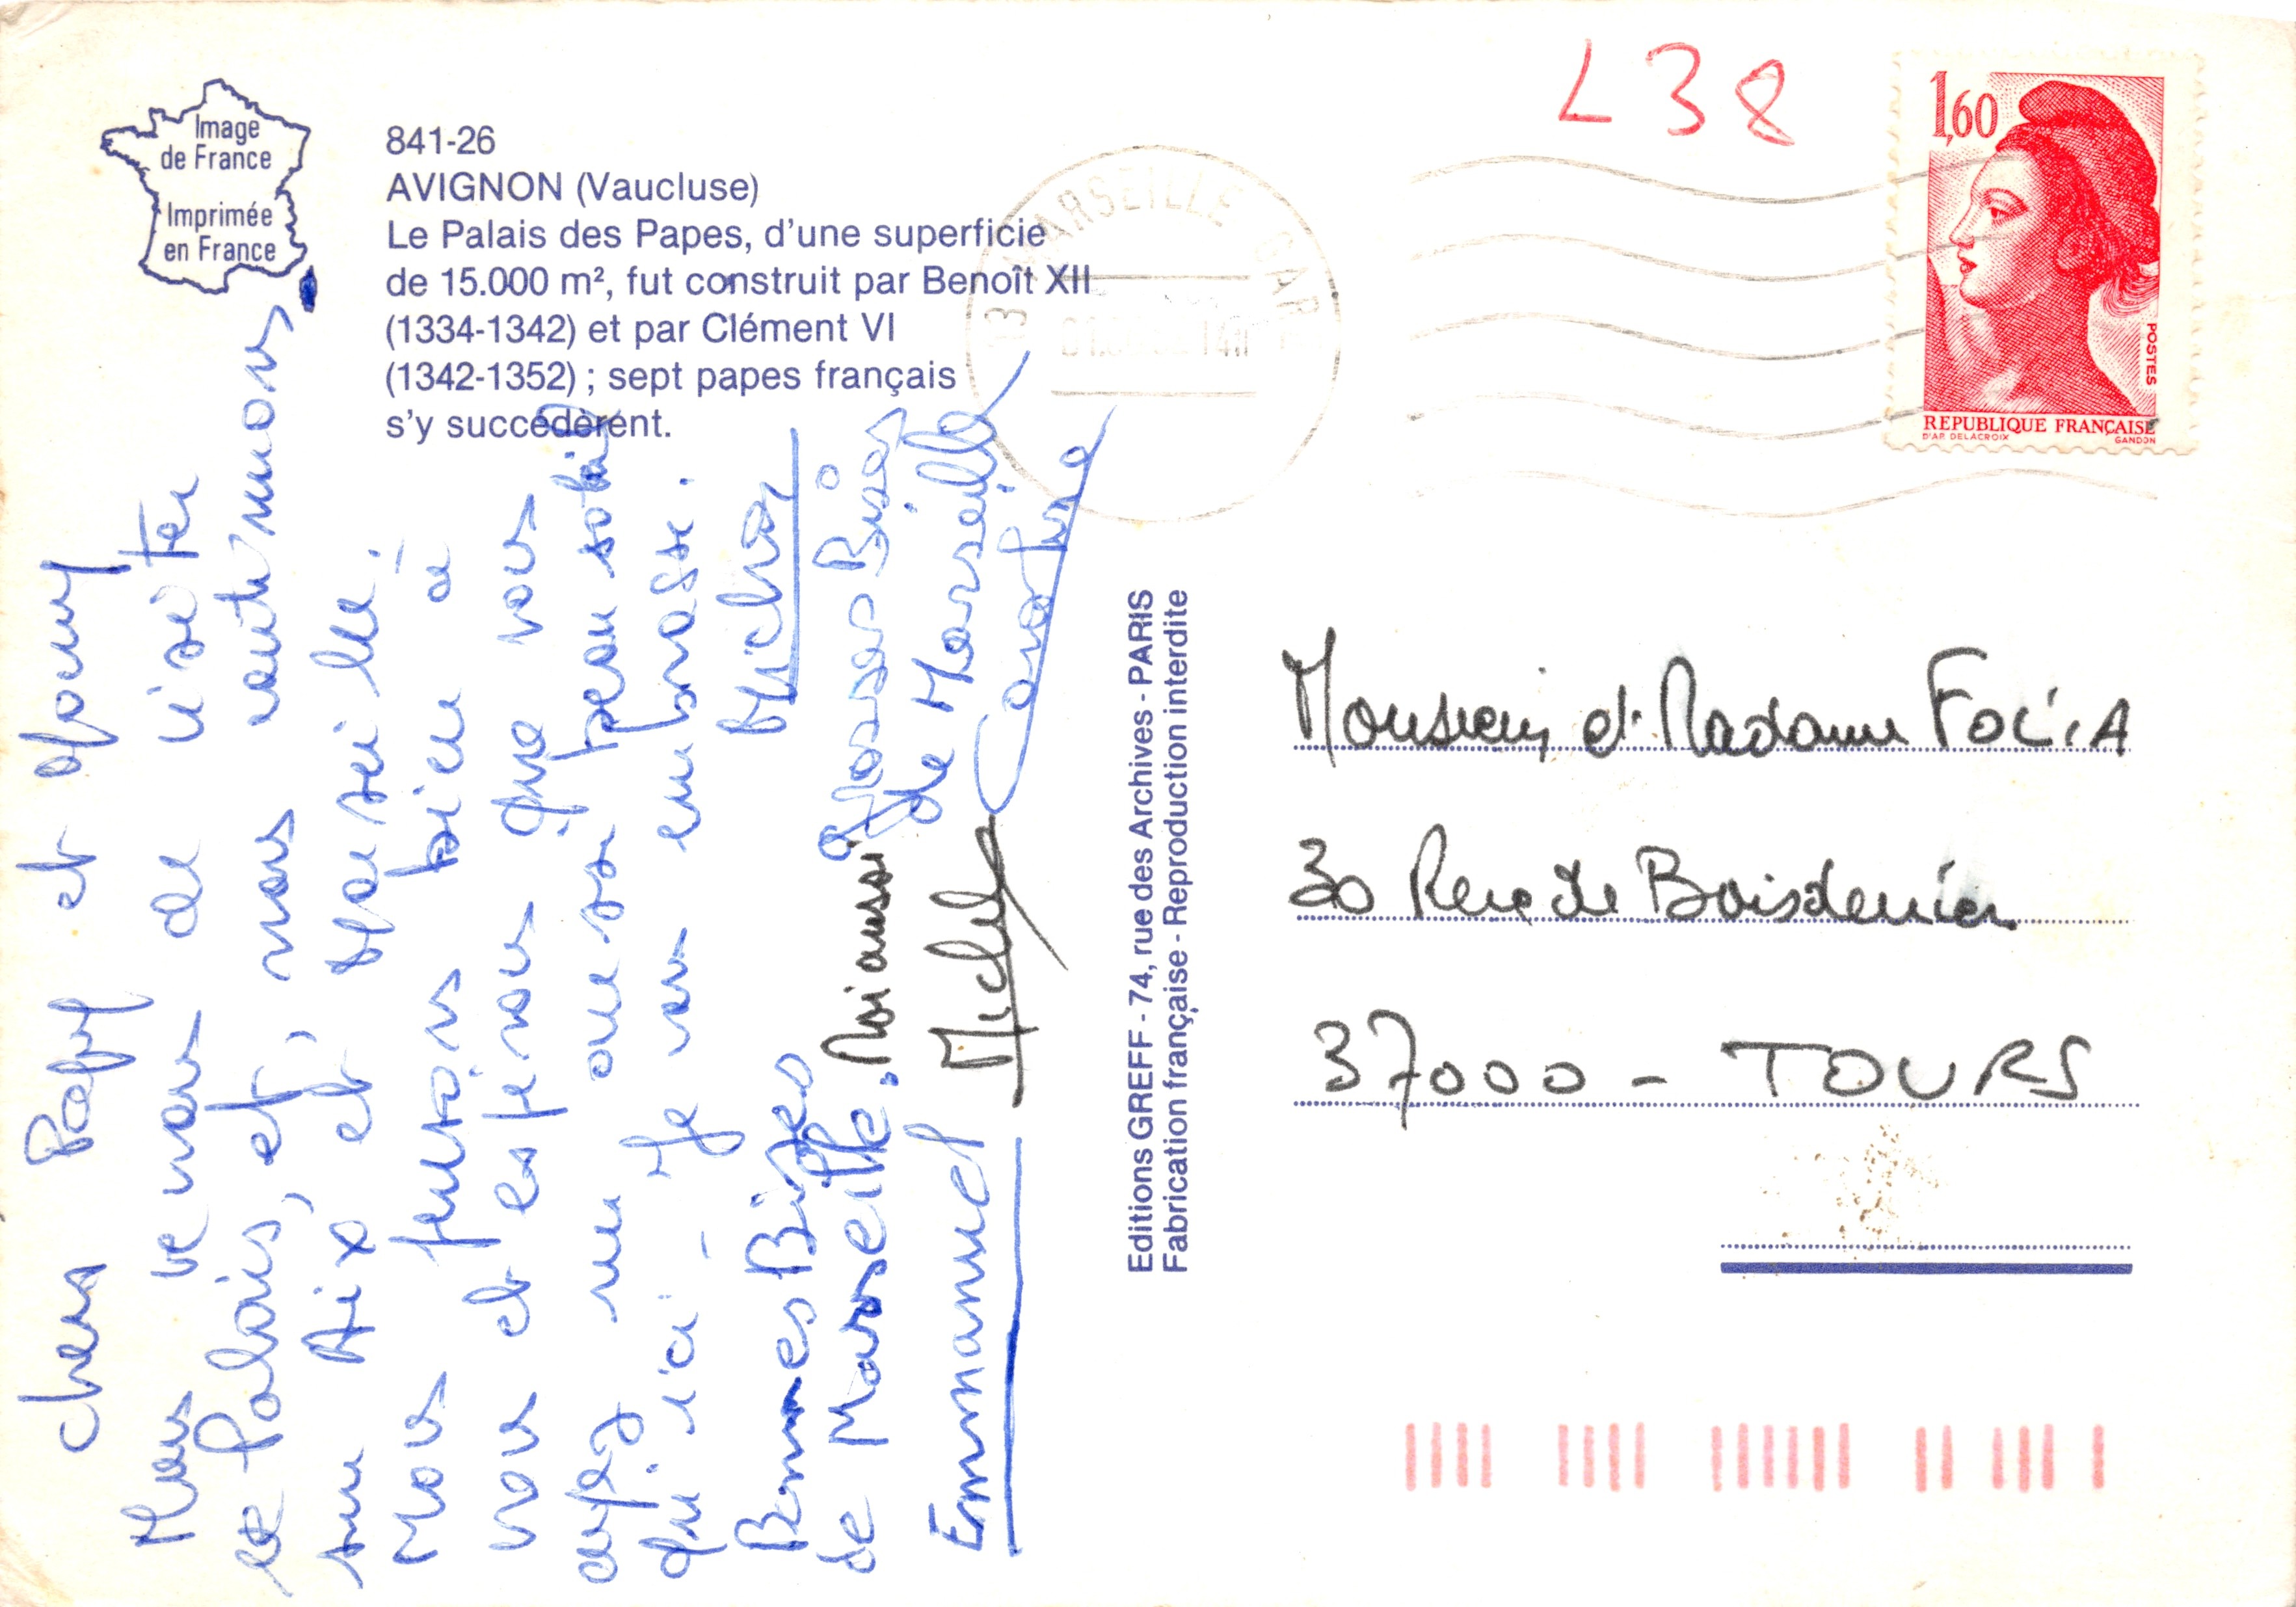 Image
de France
Imprimée
en France
841-26
AVIGNON (Vaucluse)
Le Palais des Papes, d'une superficie
de 15.000 m², fut construit par Benoît XII
(1334-1342) et par Clément VI
(1342-1352) ; sept papes français
s'y succédèrent.
L38
13 MARSEILLE GARE
1,60
POSTES
REPUBLIQUE FRANÇAISE
D'AP. DELACROIX GANDON
chers Papy et Mamy
Nous venons de visiter
le Palais, et, nous continuons
sur Aix et Marseille.
Nous pensons bien à
vous et espérons que vous
avez un aussi beau soleil
qu'ici - Je vous embrasse.
Michou
Bonnes Bises
de Marseille.
Emmanuel
Moi aussi
Michel
Grosses Bises
de Marseille
Editions GREFF - 74, rue des Archives - PARIS
Fabrication française - Reproduction interdite
Monsieur et Madame
30 Rue de Boisdenier
37000 - TOURS